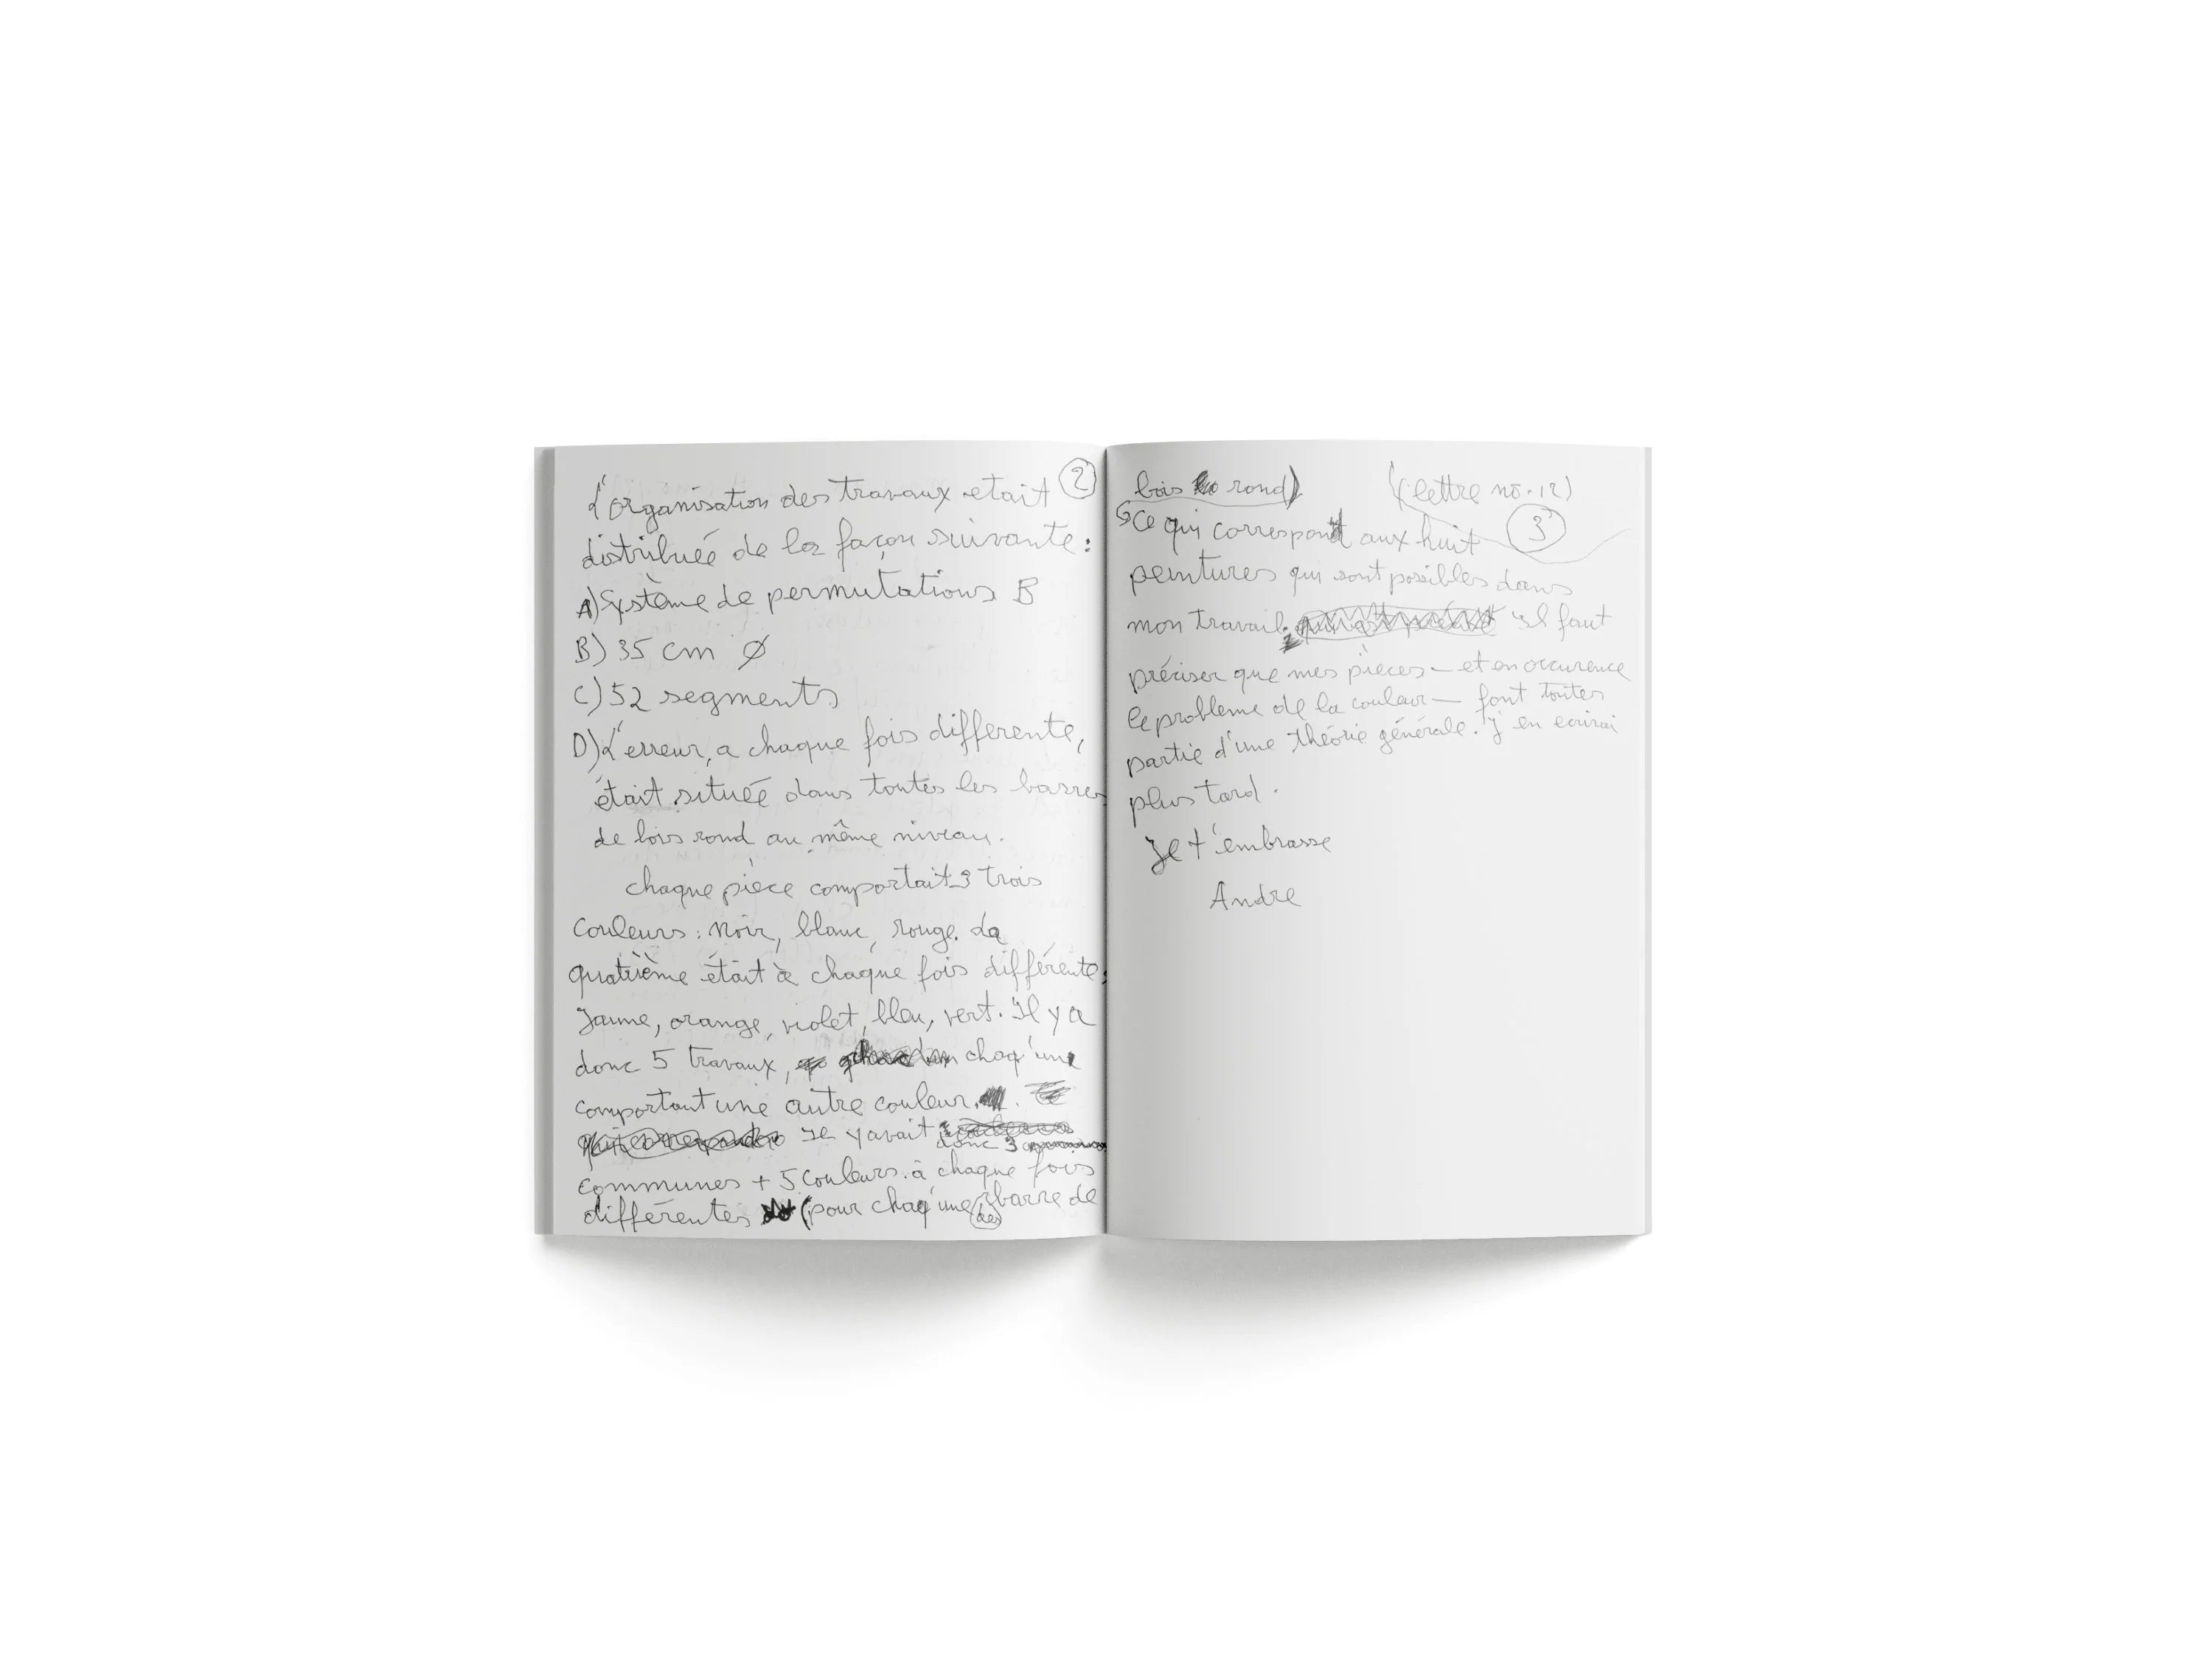 L'organisation des travaux etait ②
distribuée de la façon suivante :
A) Système de permutations B
B) 35 cm Ø
C) 52 segments
D) L'erreur, a chaque fois differente,
était située dans toutes les barres
de bois rond au même niveau.
chaque pièce comportait 3 trois
couleurs : noir, blanc, rouge. La
quatrième était à chaque fois différente,
Jaune, orange, violet, bleu, vert. Il y a
donc 5 travaux, chaq'une
comportant une autre couleur.
Il y avait donc 3
communes + 5 couleurs à chaque fois
différentes (pour chaq'une des barre de
bois rond) (lettre no. 12)
Ce qui correspond aux huit ③
peintures qui sont possibles dans
mon travail. Il faut
préciser que mes pièces — et en occurence
le probleme de la couleur — font toutes
partie d'une théorie générale. J'en ecrirai
plus tard.
Je t'embrasse
Andre